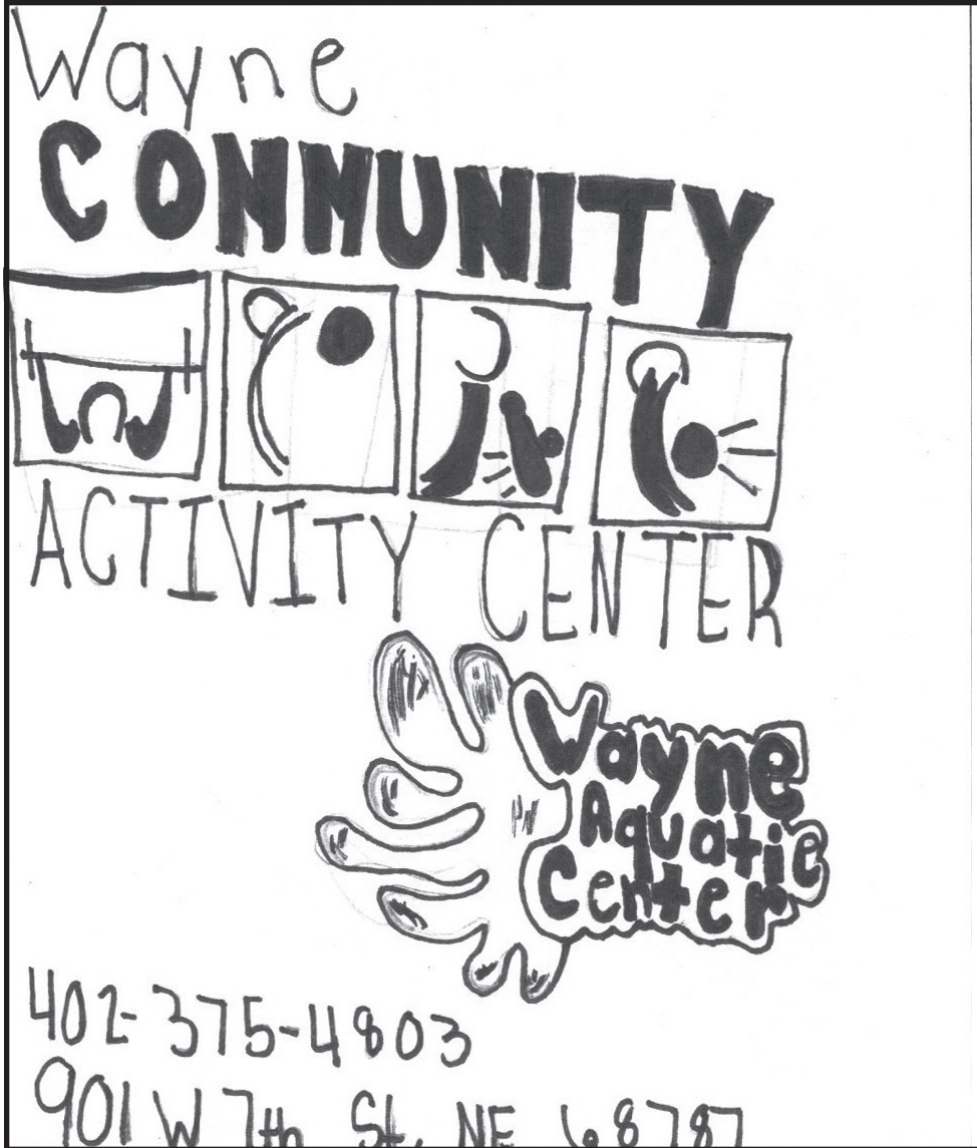 Wayne
COMMUNITY
ACTIVITY CENTER
Wayne
Aquatic
Center
402-375-4803
901 W 7th St. NE 68787